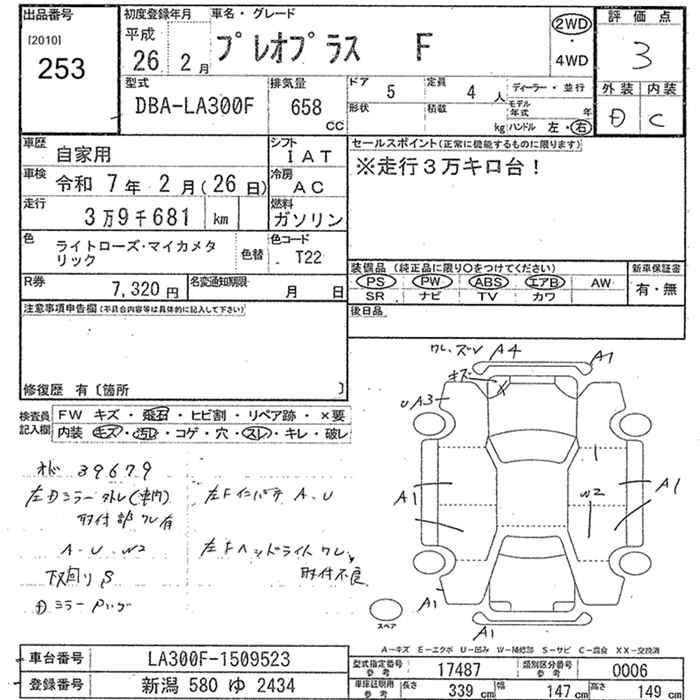 出品番号
[2010]
253
初度登録年月
平成
26 2月
車名・グレード
プレオプラス F
2WD
・
4WD
評価点
3
外装 内装
D C
型式
DBA-LA300F
排気量
658 CC
ドア 5
定員 4 人
ディーラー・並行
形状
積載 kg
モデル年式 年
ハンドル 左・右
車歴 自家用
シフト IAT
車検 令和 7年 2月(26日)
冷房 AC
走行 3万9千681 km
燃料 ガソリン
色 ライトローズ・マイカメタリック
色替
色コード T22
R券 7,320円
名変通知期限 月 日
セールスポイント(正常に機能するものに限ります)
※走行3万キロ台!
装備品(純正品に限り○をつけてください)
PS PW ABS エアB AW
SR ナビ TV カワ
新車保証書
有・無
後日品
注意事項申告欄(不具合内容等は具体的に記入して下さい)
修復歴 有〔箇所 〕
検査員記入欄
FW キズ・飛石・ヒビ割・リペア跡・×要
内装 キズ・汚レ・コゲ・穴・スレ・キレ・破レ
オド 39679
左Dミラー外レ(車内)
取付部ワレ有
A-U W2
下回りS
左Fインパネ A-U
左Fヘッドライトワレ、
取付不良
ワレ、ズレ A4 A1
キズ
UA3
A1
W2
A1
A1
A1
スペア
A―キズ E―エクボ U―凹み W―補修跡 S―サビ C―腐食 XX―交換済
車台番号 LA300F-1509523
登録番号 新潟 580 ゆ 2434
型式指定番号 参考 17487
類別区分番号 参考 0006
車庫証明用 参考 長さ 339 cm 幅 147 cm 高さ 149 cm